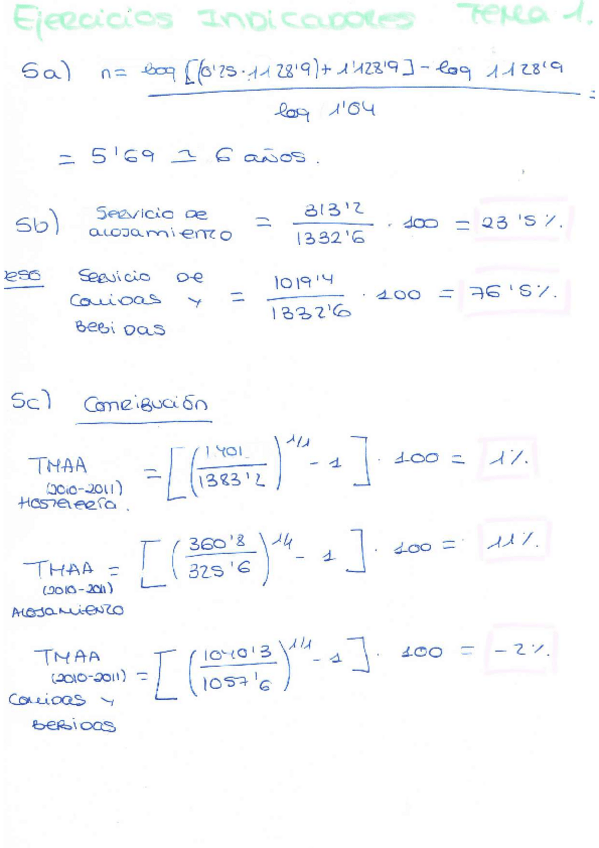 Ejercicios Indicadores Tema 1.
5a) n= log [(0'25·1128'9)+1'128'9]-log 1128'9
log 1'04 =
= 5'69 ≃ 6 años.
5b) Servicio de alojamiento = 313'2 / 1332'6 · 100 = 23'5%.
Servicio de comidas y bebidas = 1019'4 / 1332'6 · 100 = 76'5%.
5c) Contribución
TMAA (2010-2011) Hostelería. = [(1.401 / 1383'2)^1/1 - 1] · 100 = 1%.
TMAA (2010-2011) Alojamiento = [(360'8 / 325'6)^1/1 - 1] · 100 = 11%.
TMAA (2010-2011) Comidas y Bebidas = [(1040'3 / 1057'6)^1/1 - 1] · 100 = -2%.